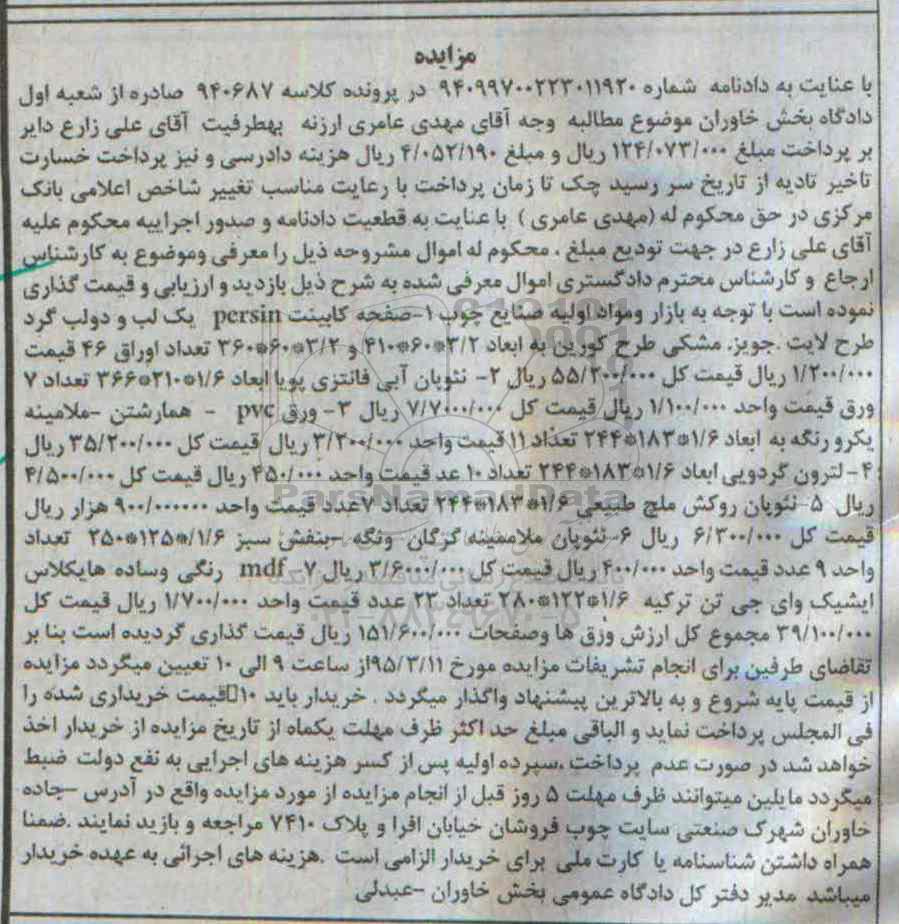 مزایده
با عنایت به دادنامه شماره ۹۴۰۹۹۷۰۰۲۲۳۰۱۱۹۲۰ در پرونده کلاسه ۹۴۰۶۸۷ صادره از شعبه اول
دادگاه بخش خاوران موضوع مطالبه وجه آقای مهدی عامری ارزنه بهطرفیت آقای علی زارع دایر
بر پرداخت مبلغ ۱۲۴/۰۷۳/۰۰۰ ریال و مبلغ ۴/۰۵۲/۱۹۰ ریال هزینه دادرسی و نیز پرداخت خسارت
تاخیر تادیه از تاریخ سر رسید چک تا زمان پرداخت با رعایت مناسب تغییر شاخص اعلامی بانک
مرکزی در حق محکوم له (مهدی عامری) با عنایت به قطعیت دادنامه و صدور اجراییه محکوم علیه
آقای علی زارع در جهت تودیع مبلغ ، محکوم له اموال مشروحه ذیل را معرفی وموضوع به کارشناس
ارجاع و کارشناس محترم دادگستری اموال معرفی شده به شرح ذیل بازدید و ارزیابی و قیمت گذاری
نموده است با توجه به بازار ومواد اولیه صنایع چوب ۱-صفحه کابینت persin یک لب و دولب گرد
طرح لایت .جویز. مشکی طرح کورین به ابعاد ۳/۲*۶۰*۴۱۰ و ۳/۲*۶۰*۳۶۰ تعداد اوراق ۴۶ قیمت
۱/۲۰۰/۰۰۰ ریال قیمت کل ۵۵/۲۰۰/۰۰۰ ریال ۲- نئوپان آبی فانتزی پویا ابعاد ۱/۶*۲۱۰*۳۶۶ تعداد ۷
ورق قیمت واحد ۱/۱۰۰/۰۰۰ ریال قیمت کل ۷/۷۰۰۰/۰۰۰ ریال ۳- ورق pvc - همارشتن -ملامینه
یکرو رنگه به ابعاد ۱/۶*۱۸۳*۲۴۴ تعداد ۱۱ قیمت واحد ۳/۲۰۰/۰۰۰ ریال قیمت کل ۳۵/۲۰۰/۰۰۰ ریال
۴- لترون گردویی ابعاد ۱/۶*۱۸۳*۲۴۴ تعداد ۱۰ عد قیمت واحد ۴۵۰/۰۰۰ ریال قیمت کل ۴/۵۰۰/۰۰۰
ریال ۵-نئوپان روکش ملچ طبیعی ۱/۶*۱۸۳*۲۴۴ تعداد ۷عدد قیمت واحد ۹۰۰/۰۰۰۰۰۰ هزار ریال
قیمت کل ۶/۳۰۰/۰۰۰ ریال ۶-نئوپان ملاممینه گرگان ونگه -بنفش سبز ۱/۶/*۱۲۵*۲۵۰ تعداد
واحد ۹ عدد قیمت واحد ۴۰۰/۰۰۰ ریال قیمت کل ۳/۶۰۰۰/۰۰۰ ریال ۷-mdf رنگی وساده هایکلاس
ایشیک وای جی تن ترکیه ۱/۶*۱۲۲*۲۸۰ تعداد ۲۳ عدد قیمت واحد ۱/۷۰۰/۰۰۰ ریال قیمت کل
۳۹/۱۰۰/۰۰۰ مجموع کل ارزش ورق ها وصفحات ۱۵۱/۶۰۰/۰۰۰ ریال قیمت گذاری گردیده است بنا بر
تقاضای طرفین برای انجام تشریفات مزایده مورخ ۹۵/۳/۱۱از ساعت ۹ الی ۱۰ تعیین میگردد مزایده
از قیمت پایه شروع و به بالاترین پیشنهاد واگذار میگردد . خریدار باید ۱۰□قیمت خریداری شده را
فی المجلس پرداخت نماید و الباقی مبلغ حد اکثر ظرف مهلت یکماه از تاریخ مزایده از خریدار اخذ
خواهد شد در صورت عدم پرداخت ،سپرده اولیه پس از کسر هزینه های اجرایی به نفع دولت ضبط
میگردد مایلین میتوانند ظرف مهلت ۵ روز قبل از انجام مزایده از مورد مزایده واقع در آدرس -جاده
خاوران شهرک صنعتی سایت چوب فروشان خیابان افرا و پلاک ۷۴۱۰ مراجعه و بازید نمایند .ضمنا
همراه داشتن شناسنامه یا کارت ملی برای خریدار الزامی است .هزینه های اجرائی به عهده خریدار
میباشد مدیر دفتر کل دادگاه عمومی بخش خاوران -عبدلی
ParsNamadData